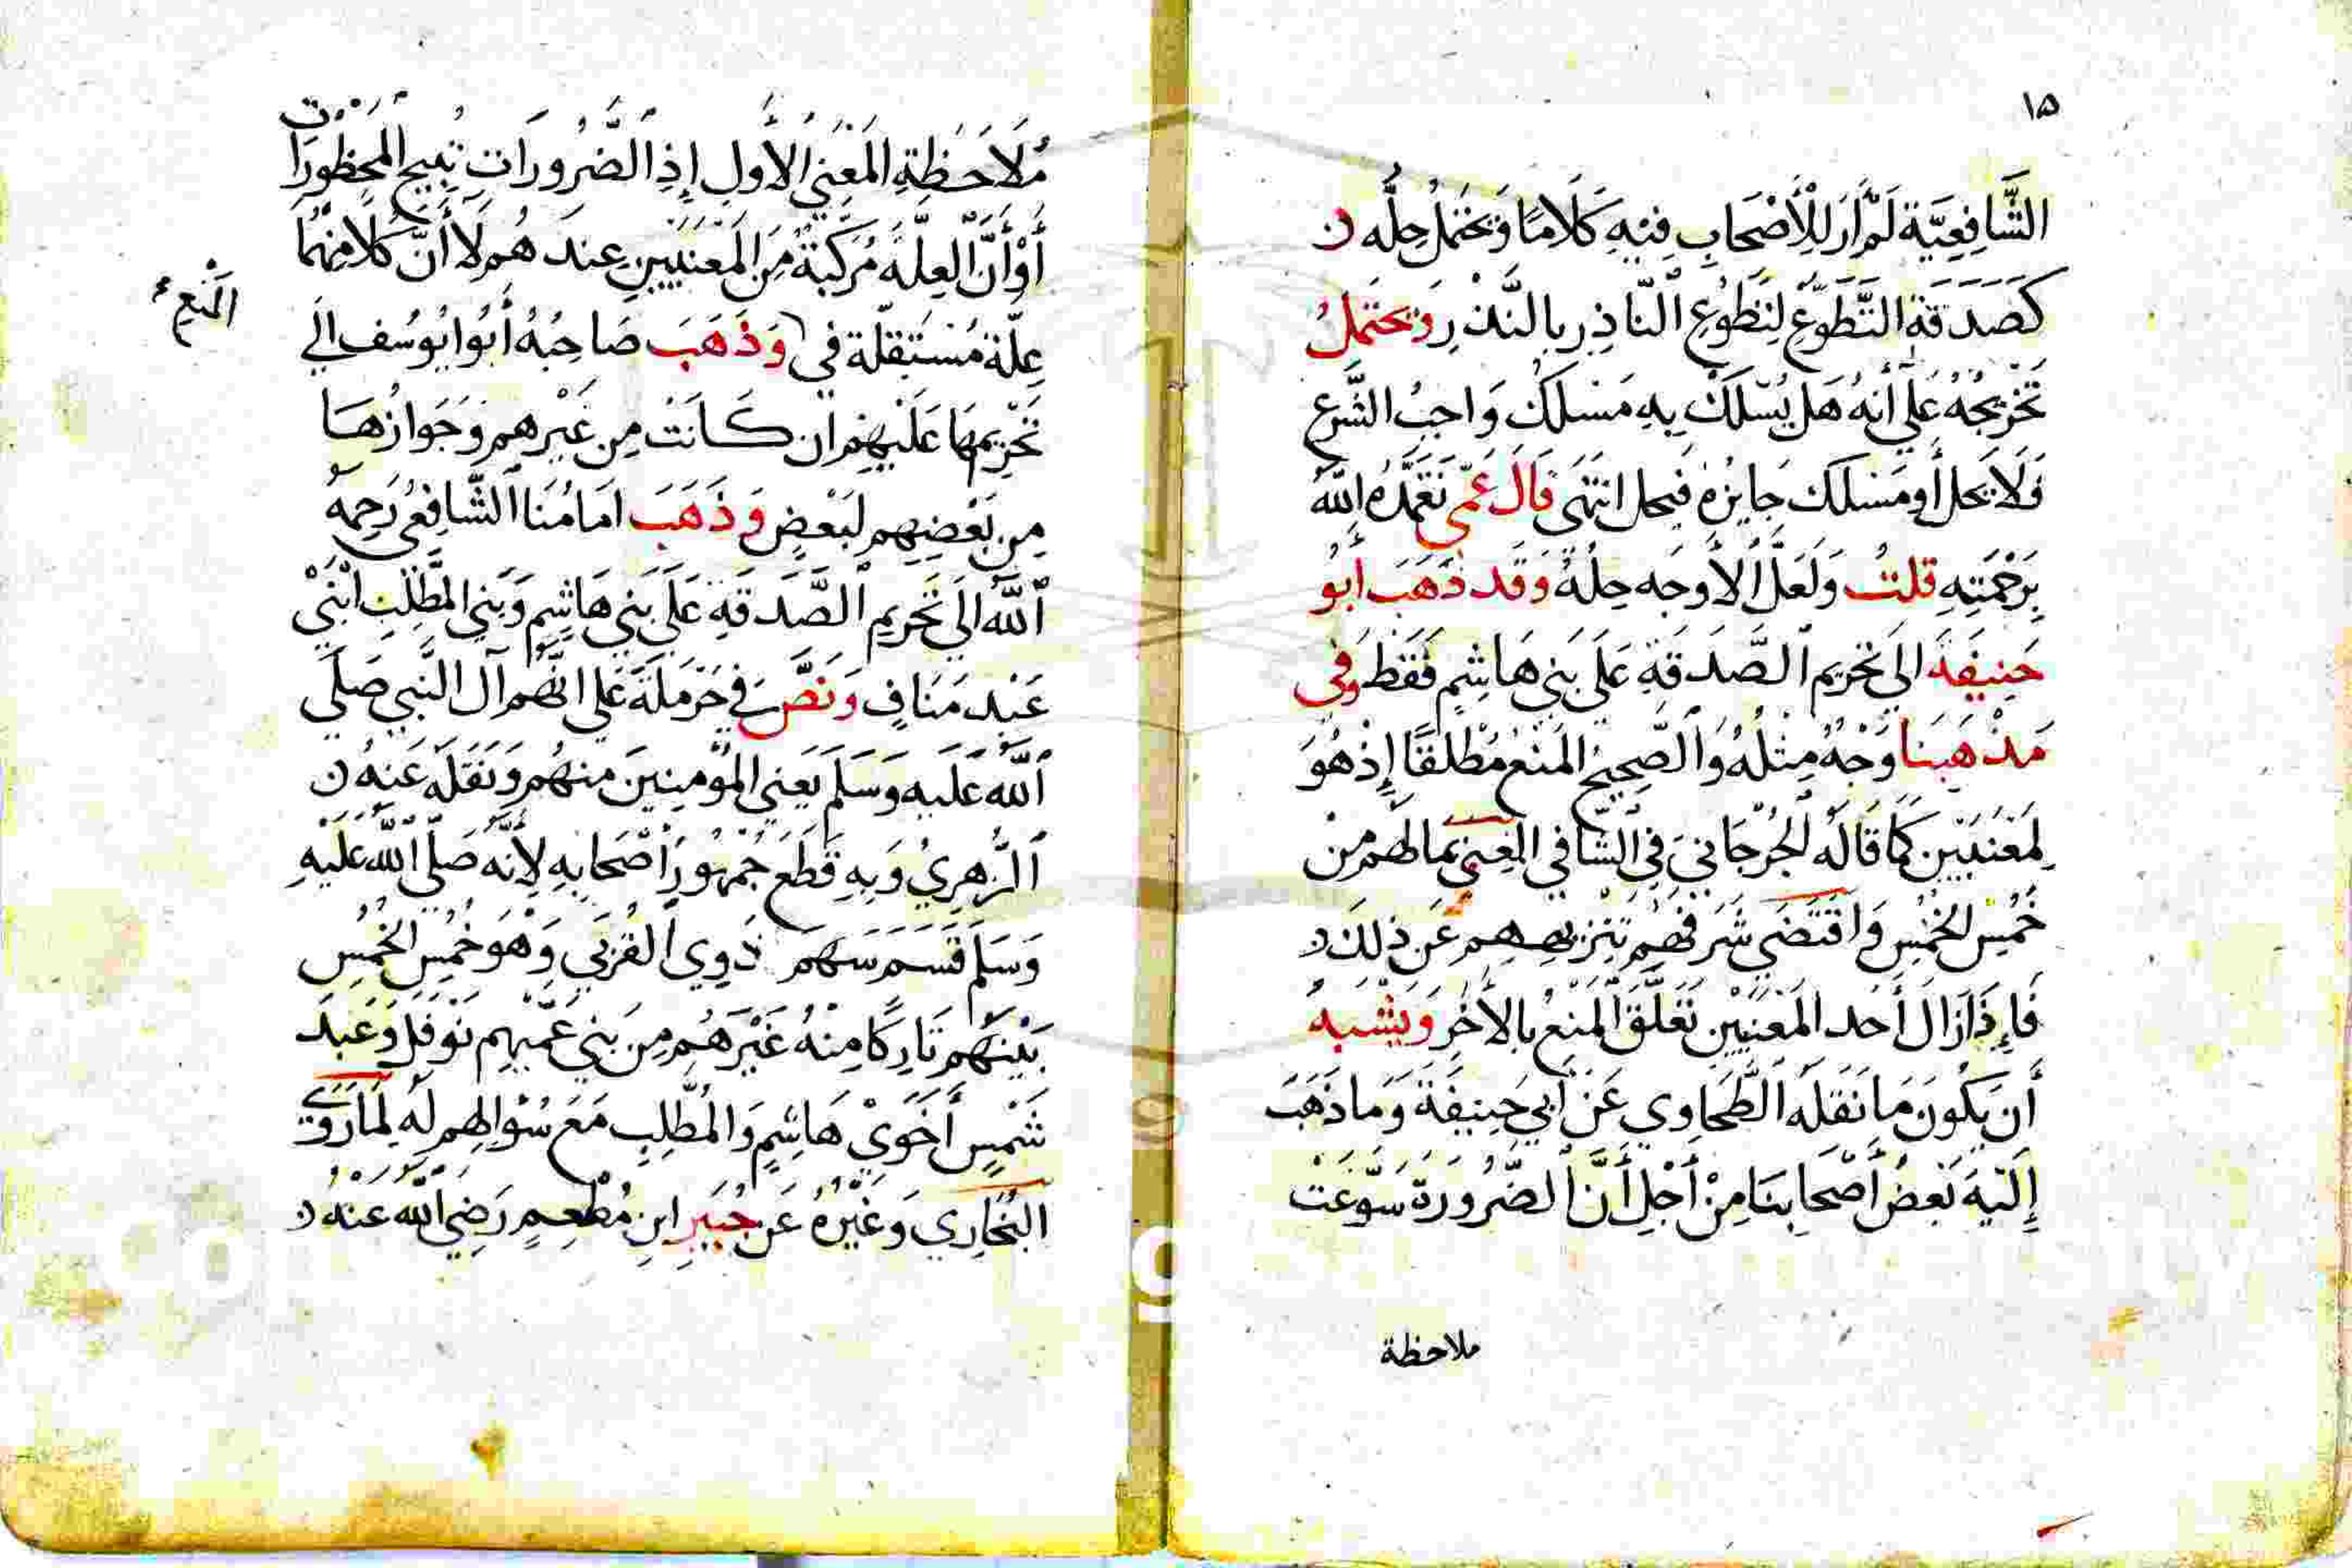 ١٥
الشَّافِعِيَّة لَمْ أَرَ لِلْأَصْحَابِ فِيْهِ كَلَامًا وَيَحْتَمِلُ حِلُّه
كَصَدَقَةِ التَّطَوّعِ لِتَطَوُّعِ النَّاذِرِ بِالنَّذْرِ وَيَحْتَمِلُ
تَخْرِيجُهُ عَلَى أَنهُ هَل يُسْلَكُ بِهِ مَسْلَكَ وَاجِبُ الشَّرعِ
فَلَا يَحل أَو مَسْلك جَايزهُ فيحل انتَهَى قَالَ عَمّى تَغَمَّدَهُ اللَّهُ
بِرَحْمَتِهِ قلتُ وَلَعَلَّ الأَوجَه حِلُّهُ وَقَد ذَهَبَ ابُو
حَنِيفَةَ الَى تَحْرِيمِ الصَّدَقَةِ عَلَى بَنِي هَاشِمٍ فَقَطْ وَفِى
مَذْهَبِنَا وَجْهٌ مِثْلُهُ وَالصَّحِيحُ المَنْع مُطْلَقًا إِذْ هُوَ
لِمَعْنَيَيْنِ كَمَا قَالَهُ الجُرْجَانِيّ فِي الشَّافِي الغِنَى بِمَا لَهُم مِنْ
خُمُسِ الخُمُسِ وَاقْتَضَى شَرَفُهُم تنزيههم عَن ذلِكَ
فَإِذَا زَالَ أَحَد المَعْنَيَيْنِ تَعَلَّقَ المَنْعُ بِالأَخَرِ وَيُشْبِهُ
أَن يَكُونَ مَا نَقَلَهُ الطَّحَاوِي عَنْ أَبِي حَنِيفَةَ وَمَا ذَهَبَ
إِلَيْهِ بَعْضُ أَصْحَابِنَا مِنْ أَجْلِ أَنَّ الضَّرُورَةَ سَوَّغَتْ
ملاحظة
مُلَاحَظَةِ المَعْنَى الأَولِ إِذِ الضَّرُورَاتِ تُبِيحُ المَحْظُورَات
أَوْ أَنَّ العِلَّةَ مُرَكَّبَةٌ مِنَ المَعْنَيَيْنِ عِندَ هُم لَا أَنَّ كُلًّا مِنْهُمَا
عِلّة مُسْتَقِلّة في وَذَهَبَ صَاحِبُهُ أَبُو ايُوسُف الَي
المَنعِ
تَحْرِيمِهَا عَلَيْهِم ان كَانَتْ مِن غَيْرِهم وَجَوَازُهَا
مِن بَعْضِهِم لبَعْضٍ وَذَهَبَ امَامُنَا الشَّافِعيُ رَحِمَهُ
اللَّهُ الَي تَحْرِيمِ الصَّدَقَةِ عَلَى بَنِي هَاشِمٍ وَبَنِي المُطَّلِبِ ابْنَيْ
عَبْدِ مَنَافٍ وَنَصَّ في حَرْمَلَةَ عَلى انَّهُم آل النَّبِي صَلَّى
اللَّهُ عَلَيهِ وَسَلَم يَعْنِي المُؤْمِنِينَ منهُم وَنَقَلَهُ عَنهُ
الزُّهرِيُ وَبِهِ قَطَعَ جُمْهُورُ أَصْحَابِهِ لِأَنَّه صَلَّى اللَّهُ عَلَيْهِ
وَسَلَّمَ قَسَم سَهمَ ذَوِي القُرْبَي وَهُوَ خُمُس الخُمُسِ
بَيْنَهُم تَارِكًا مِنْهُ غَيْرَهُم مِن بَنِي عَمِّهِم نَوْفَل وَعَبد
شَمْسٍ أَخَوَيْ هَاشِمٍ وَالمُطَّلِبِ مَعَ سُؤَالِهِم لَهُ لِمَا رَوَى
البُخَارِي وَغَيْرُهُ عَن جُبَيرِ ابنِ مُطْعِمٍ رَضِيَ اللَّهُ عَنْهُ